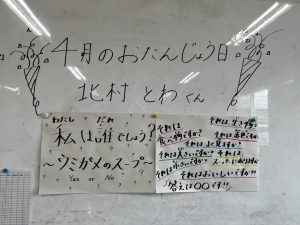 4月のおたんじょう日
北村とわくん
わたし だれ
私は誰でしょう?
~ウミガメのスープ~
Yes or No
それは
食べ物ですか?
それは生き物
ですか?
それは黄色ですか?
それはよく見ますか?
それは大きいですか?
それは
小さいですか?
それはおいしいですか?
答えは〇〇です!!